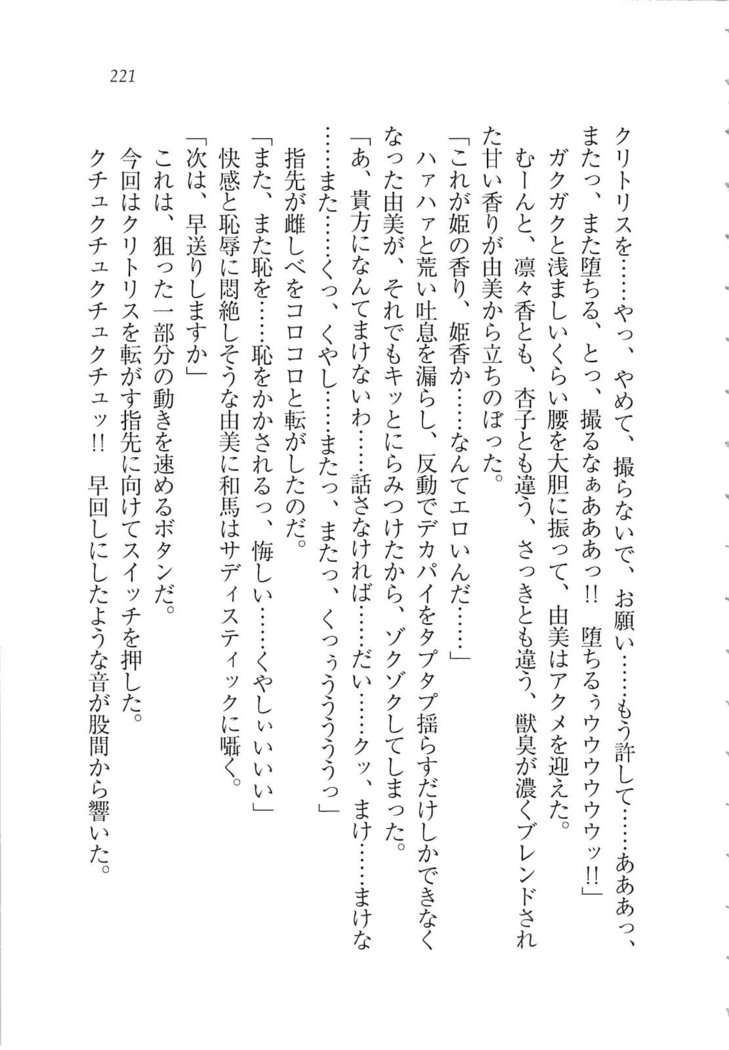 221
クリトリスを……やっ、やめて、撮らないで、お願い……もう許して……あああっ、
またっ、また堕ちる、とっ、撮るなぁあああっ!! 堕ちるぅウウウウウウッ!!」
ガクガクと浅ましいくらい腰を大胆に振って、由美はアクメを迎えた。
むーんと、凛々香とも、杏子とも違う、さっきとも違う、獣臭が濃くブレンドされ
た甘い香りが由美から立ちのぼった。
「これが姫の香り、姫香か……なんてエロいんだ……」
ハァハァと荒い吐息を漏らし、反動でデカパイをタプタプ揺らすだけしかできなく
なった由美が、それでもキッとにらみつけたから、ゾクゾクしてしまった。
「あ、貴方になんてまけないわ……話さなければ……だい……クッ、まけ……まけな
……また……くっ、くやし……またっ、またっ、くっぅうううううっ」
指先が雌しべをコロコロと転がしたのだ。
「また、また恥を……恥をかかされるっ、悔しい……くやしぃいいいい」
快感と恥辱に悶絶しそうな由美に和馬はサディスティックに囁く。
「次は、早送りしますか」
これは、狙った一部分の動きを速めるボタンだ。
今回はクリトリスを転がす指先に向けてスイッチを押した。
クチュクチュクチュクチュッ!! 早回しにしたような音が股間から響いた。